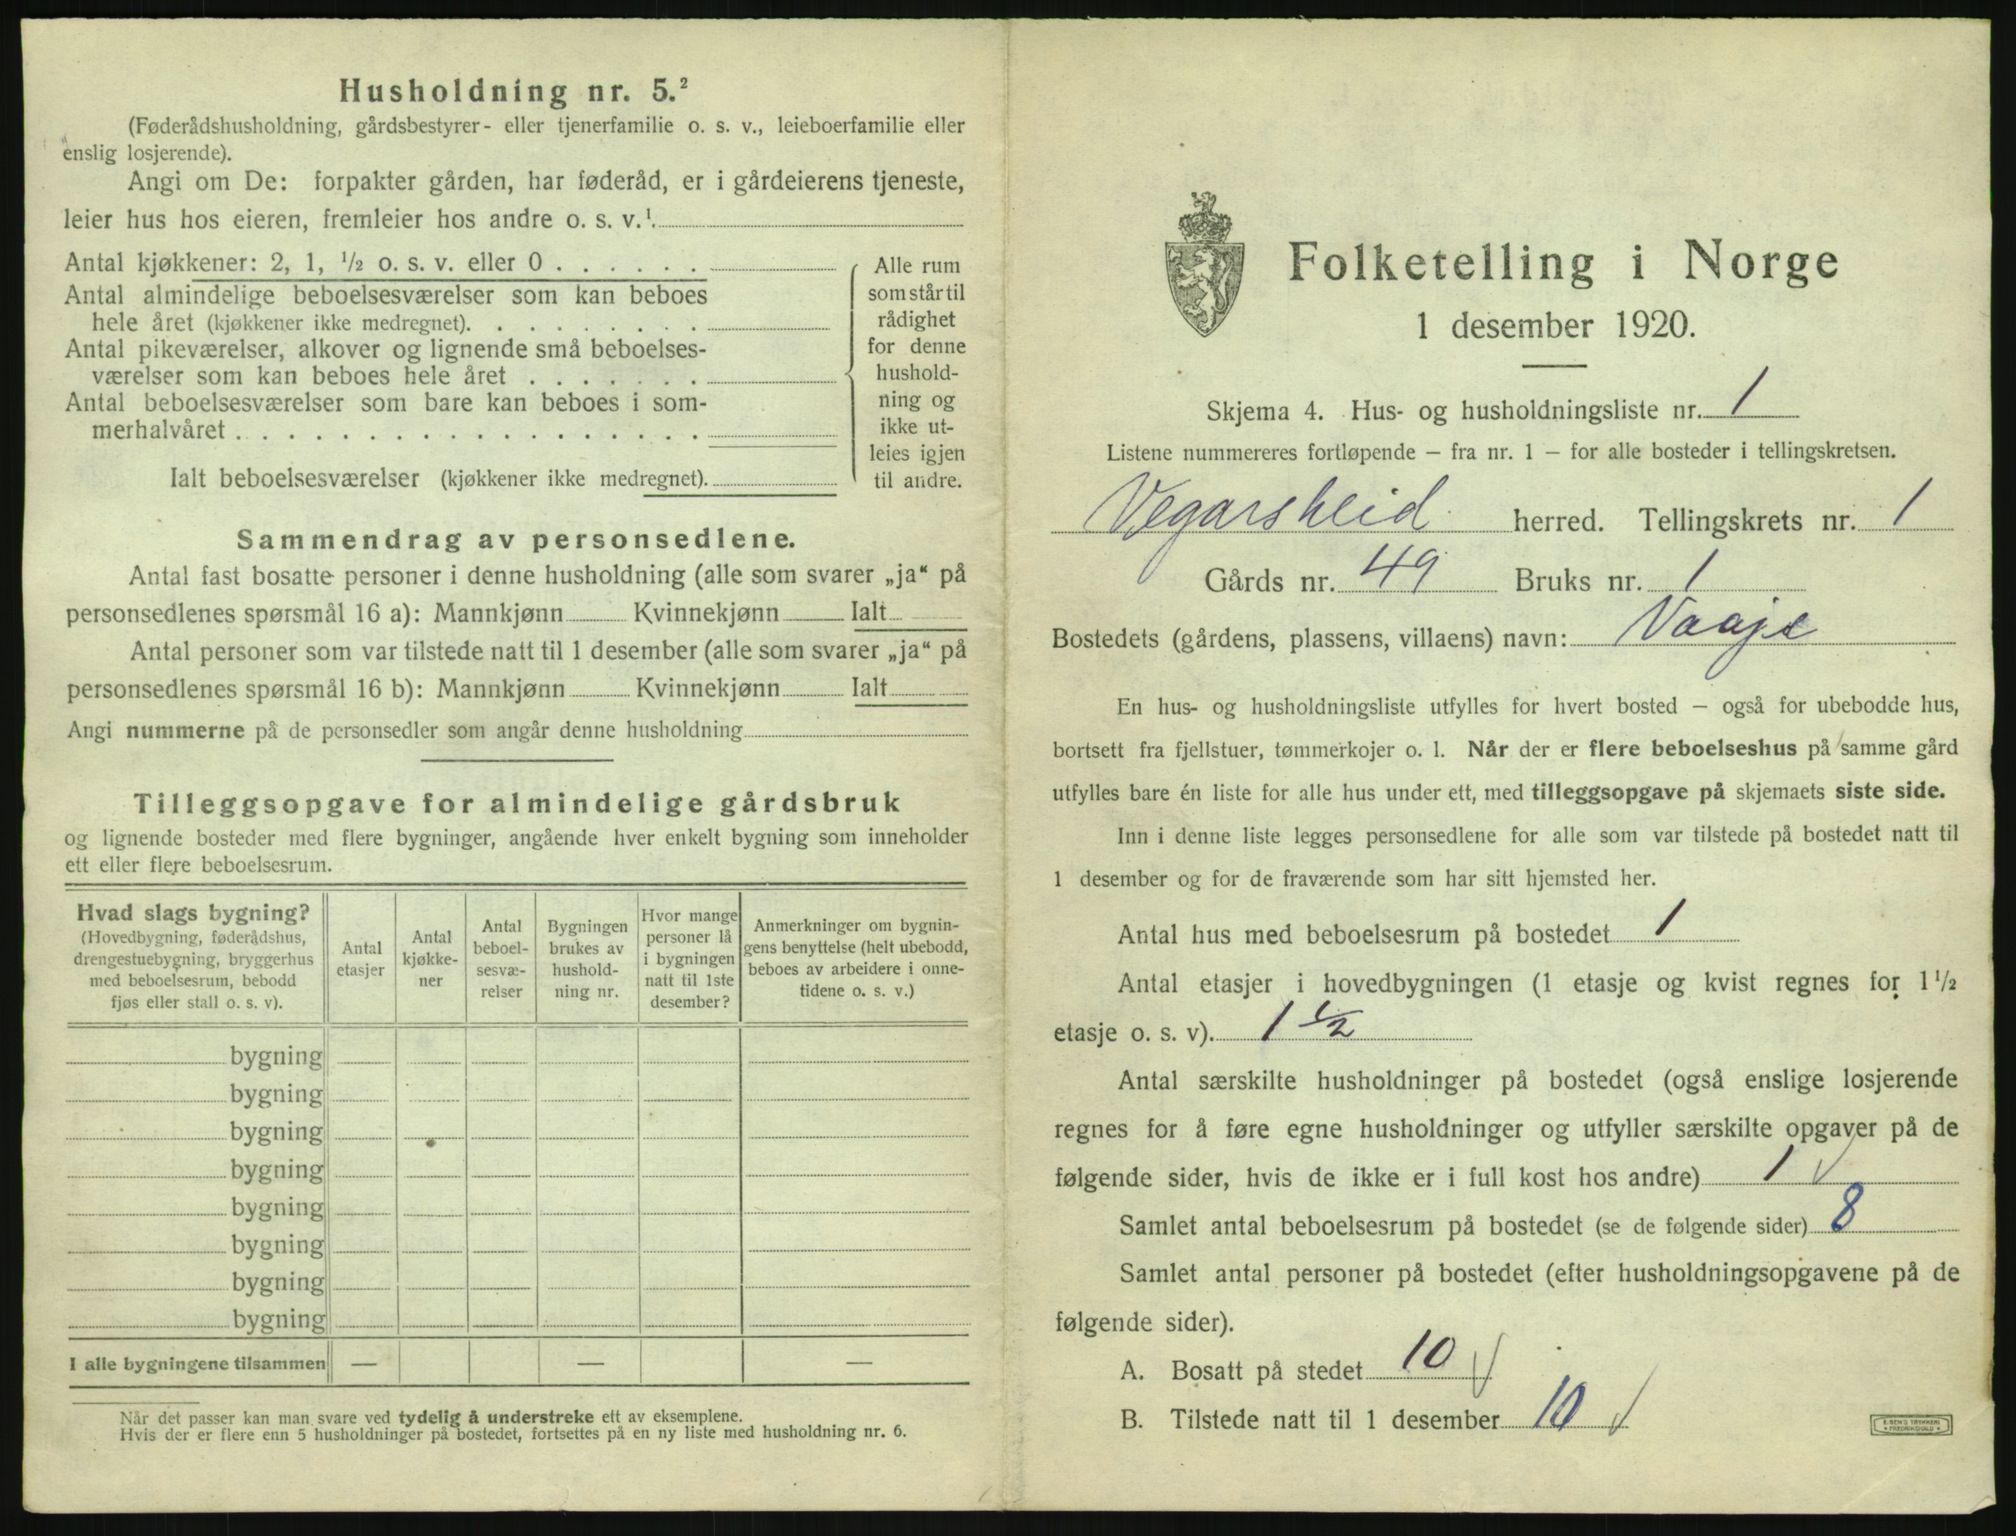 Husholdning nr. 5.²
(Føderådshusholdning, gårdsbestyrer- eller tjenerfamilie o. s. v., leieboerfamilie eller
enslig losjerende).
Angi om De: forpakter gården, har føderåd, er i gårdeierens tjeneste,
leier hus hos eieren, fremleier hos andre o. s. v.¹
Antal kjøkkener: 2, 1, ½ o. s. v. eller 0 . . . . . .
Antal almindelige beboelsesværelser som kan beboes
hele året (kjøkkener ikke medregnet). . . . . . . . .
Antal pikeværelser, alkover og lignende små beboelses-
værelser som kan beboes hele året . . . . . . .
Antal beboelsesværelser som bare kan beboes i som-
merhalvåret . . . . . . . . . . . . . . . . . .
Ialt beboelsesværelser (kjøkkener ikke medregnet).
Alle rum
som står til
rådighet
for denne
hushold-
ning og
ikke ut-
leies igjen
til andre.
Sammendrag av personsedlene.
Antal fast bosatte personer i denne husholdning (alle som svarer „ja“ på
personsedlenes spørsmål 16 a): Mannkjønn Kvinnekjønn Ialt
Antal personer som var tilstede natt til 1 desember (alle som svarer „ja“ på
personsedlenes spørsmål 16 b): Mannkjønn Kvinnekjønn Ialt
Angi nummerne på de personsedler som angår denne husholdning
Tilleggsopgave for almindelige gårdsbruk
og lignende bosteder med flere bygninger, angående hver enkelt bygning som inneholder
ett eller flere beboelsesrum.
Hvad slags bygning?
(Hovedbygning, føderådshus,
drengestuebygning, bryggerhus
med beboelsesrum, bebodd
fjøs eller stall o. s. v).
Antal
etasjer
Antal
kjøkke-
ner
Antal
beboel-
sesvæ-
relser
Bygningen
brukes av
hushold-
ning nr.
Hvor mange
personer lå
i bygningen
natt til 1ste
desember?
Anmerkninger om bygnin-
gens benyttelse (helt ubebodd,
beboes av arbeidere i onne-
tidene o. s. v.)
bygning
bygning
bygning
bygning
bygning
bygning
bygning
bygning
I alle bygningene tilsammen — — —
Når det passer kan man svare ved tydelig å understreke ett av eksemplene.
Hvis der er flere enn 5 husholdninger på bostedet, fortsettes på en ny liste med husholdning nr. 6.
Folketelling i Norge
1 desember 1920.
Skjema 4. Hus- og husholdningsliste nr. 1
Listene nummereres fortløpende — fra nr. 1 — for alle bosteder i tellingskretsen.
Vegarsheid herred. Tellingskrets nr. 1
Gårds nr. 49 Bruks nr. 1
Bostedets (gårdens, plassens, villaens) navn: Vaaje
En hus- og husholdningsliste utfylles for hvert bosted — også for ubebodde hus,
bortsett fra fjellstuer, tømmerkojer o. l. Når der er flere beboelseshus på samme gård
utfylles bare én liste for alle hus under ett, med tilleggsopgave på skjemaets siste side.
Inn i denne liste legges personsedlene for alle som var tilstede på bostedet natt til
1 desember og for de fraværende som har sitt hjemsted her.
Antal hus med beboelsesrum på bostedet 1
Antal etasjer i hovedbygningen (1 etasje og kvist regnes for 1½
etasje o. s. v). 1 ½
Antal særskilte husholdninger på bostedet (også enslige losjerende
regnes for å føre egne husholdninger og utfyller særskilte opgaver på de
følgende sider, hvis de ikke er i full kost hos andre) 1 √
Samlet antal beboelsesrum på bostedet (se de følgende sider) 8
Samlet antal personer på bostedet (efter husholdningsopgavene på de
følgende sider).
A. Bosatt på stedet 10 √
B. Tilstede natt til 1 desember 10 √
E. SEM'S TRYKKERI
FREDRIKSHALD